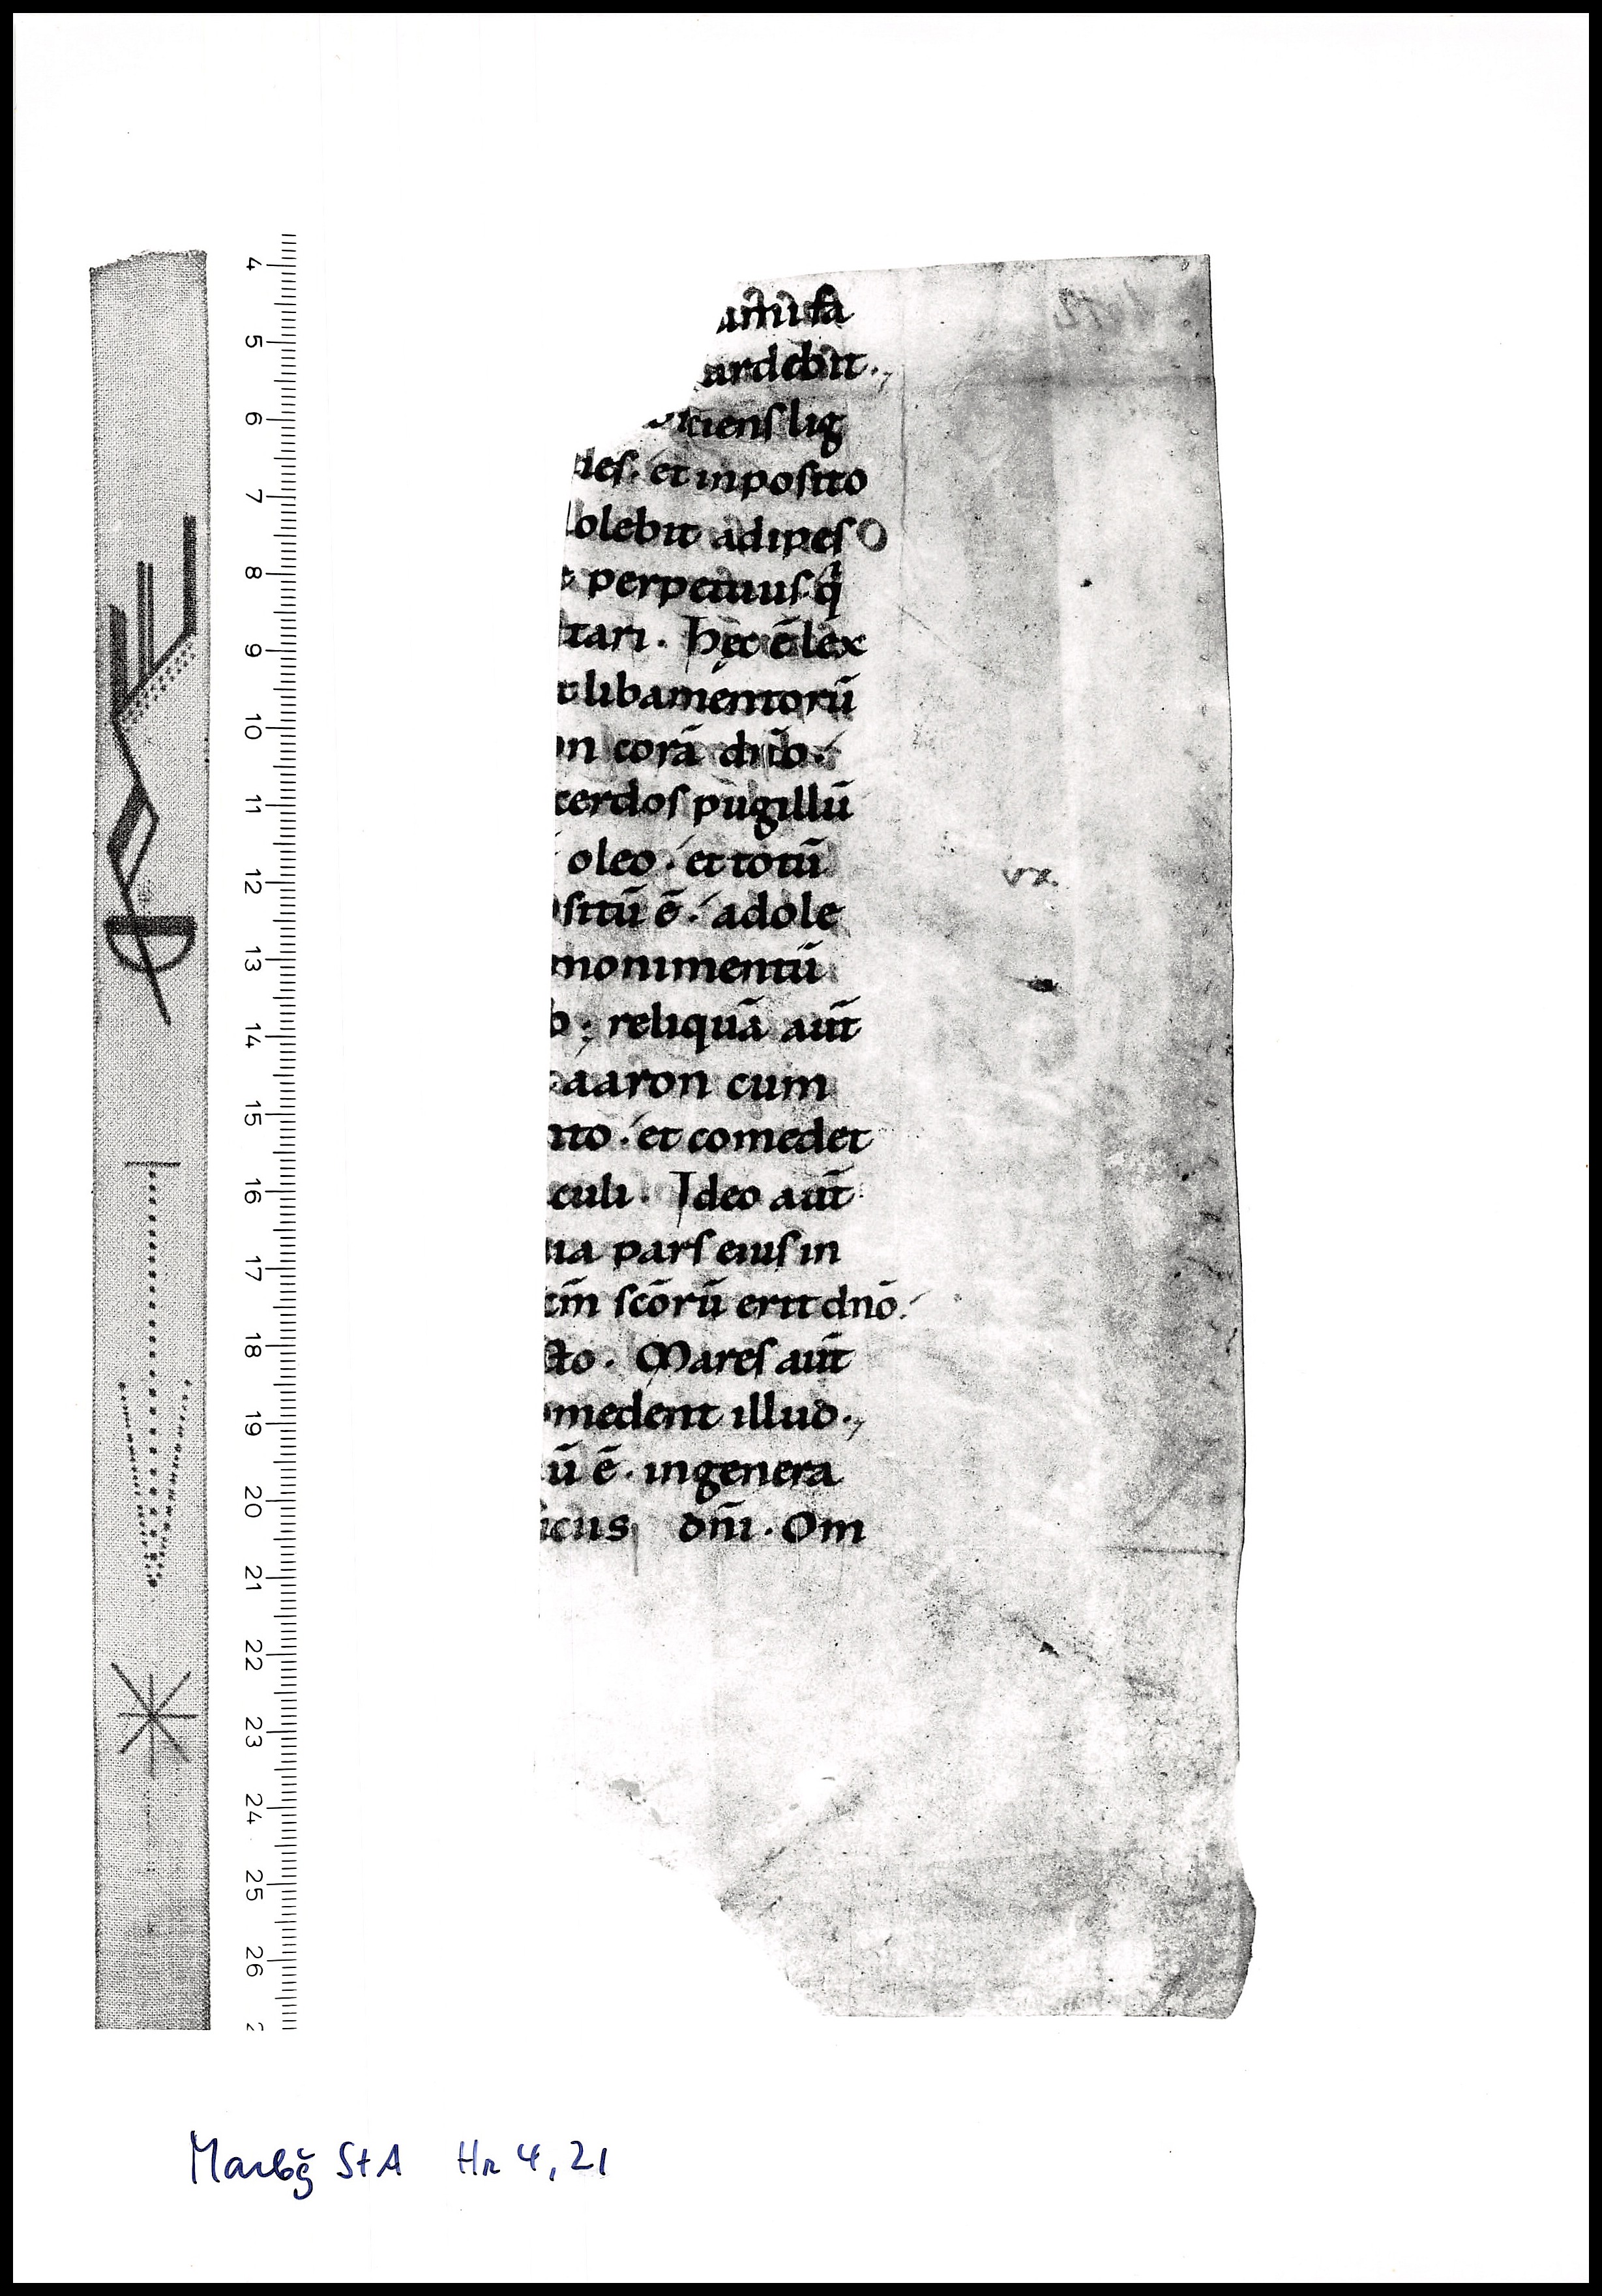 ardebit.,
iciens lig
et inposito
olebit adipes
perpetuus q
tari. Hęc ē lex
libamentorū
corā dńo.
cerdos pugillū
oleo. et totū
sitū ē. adole
monimentū
reliquā aut̄
aaron cum
ito. et comedet
culi. Ideo aut̄
pars eius in
scōrū erit dnō.
sto. Mares aut̄
medent illud.,
ū ē. in genera
icus dn̄i. Om
vx.
4
5
6
7
8
9
10
11
12
13
14
15
16
17
18
19
20
21
22
23
24
25
26
Marbg StA Hr 4,21